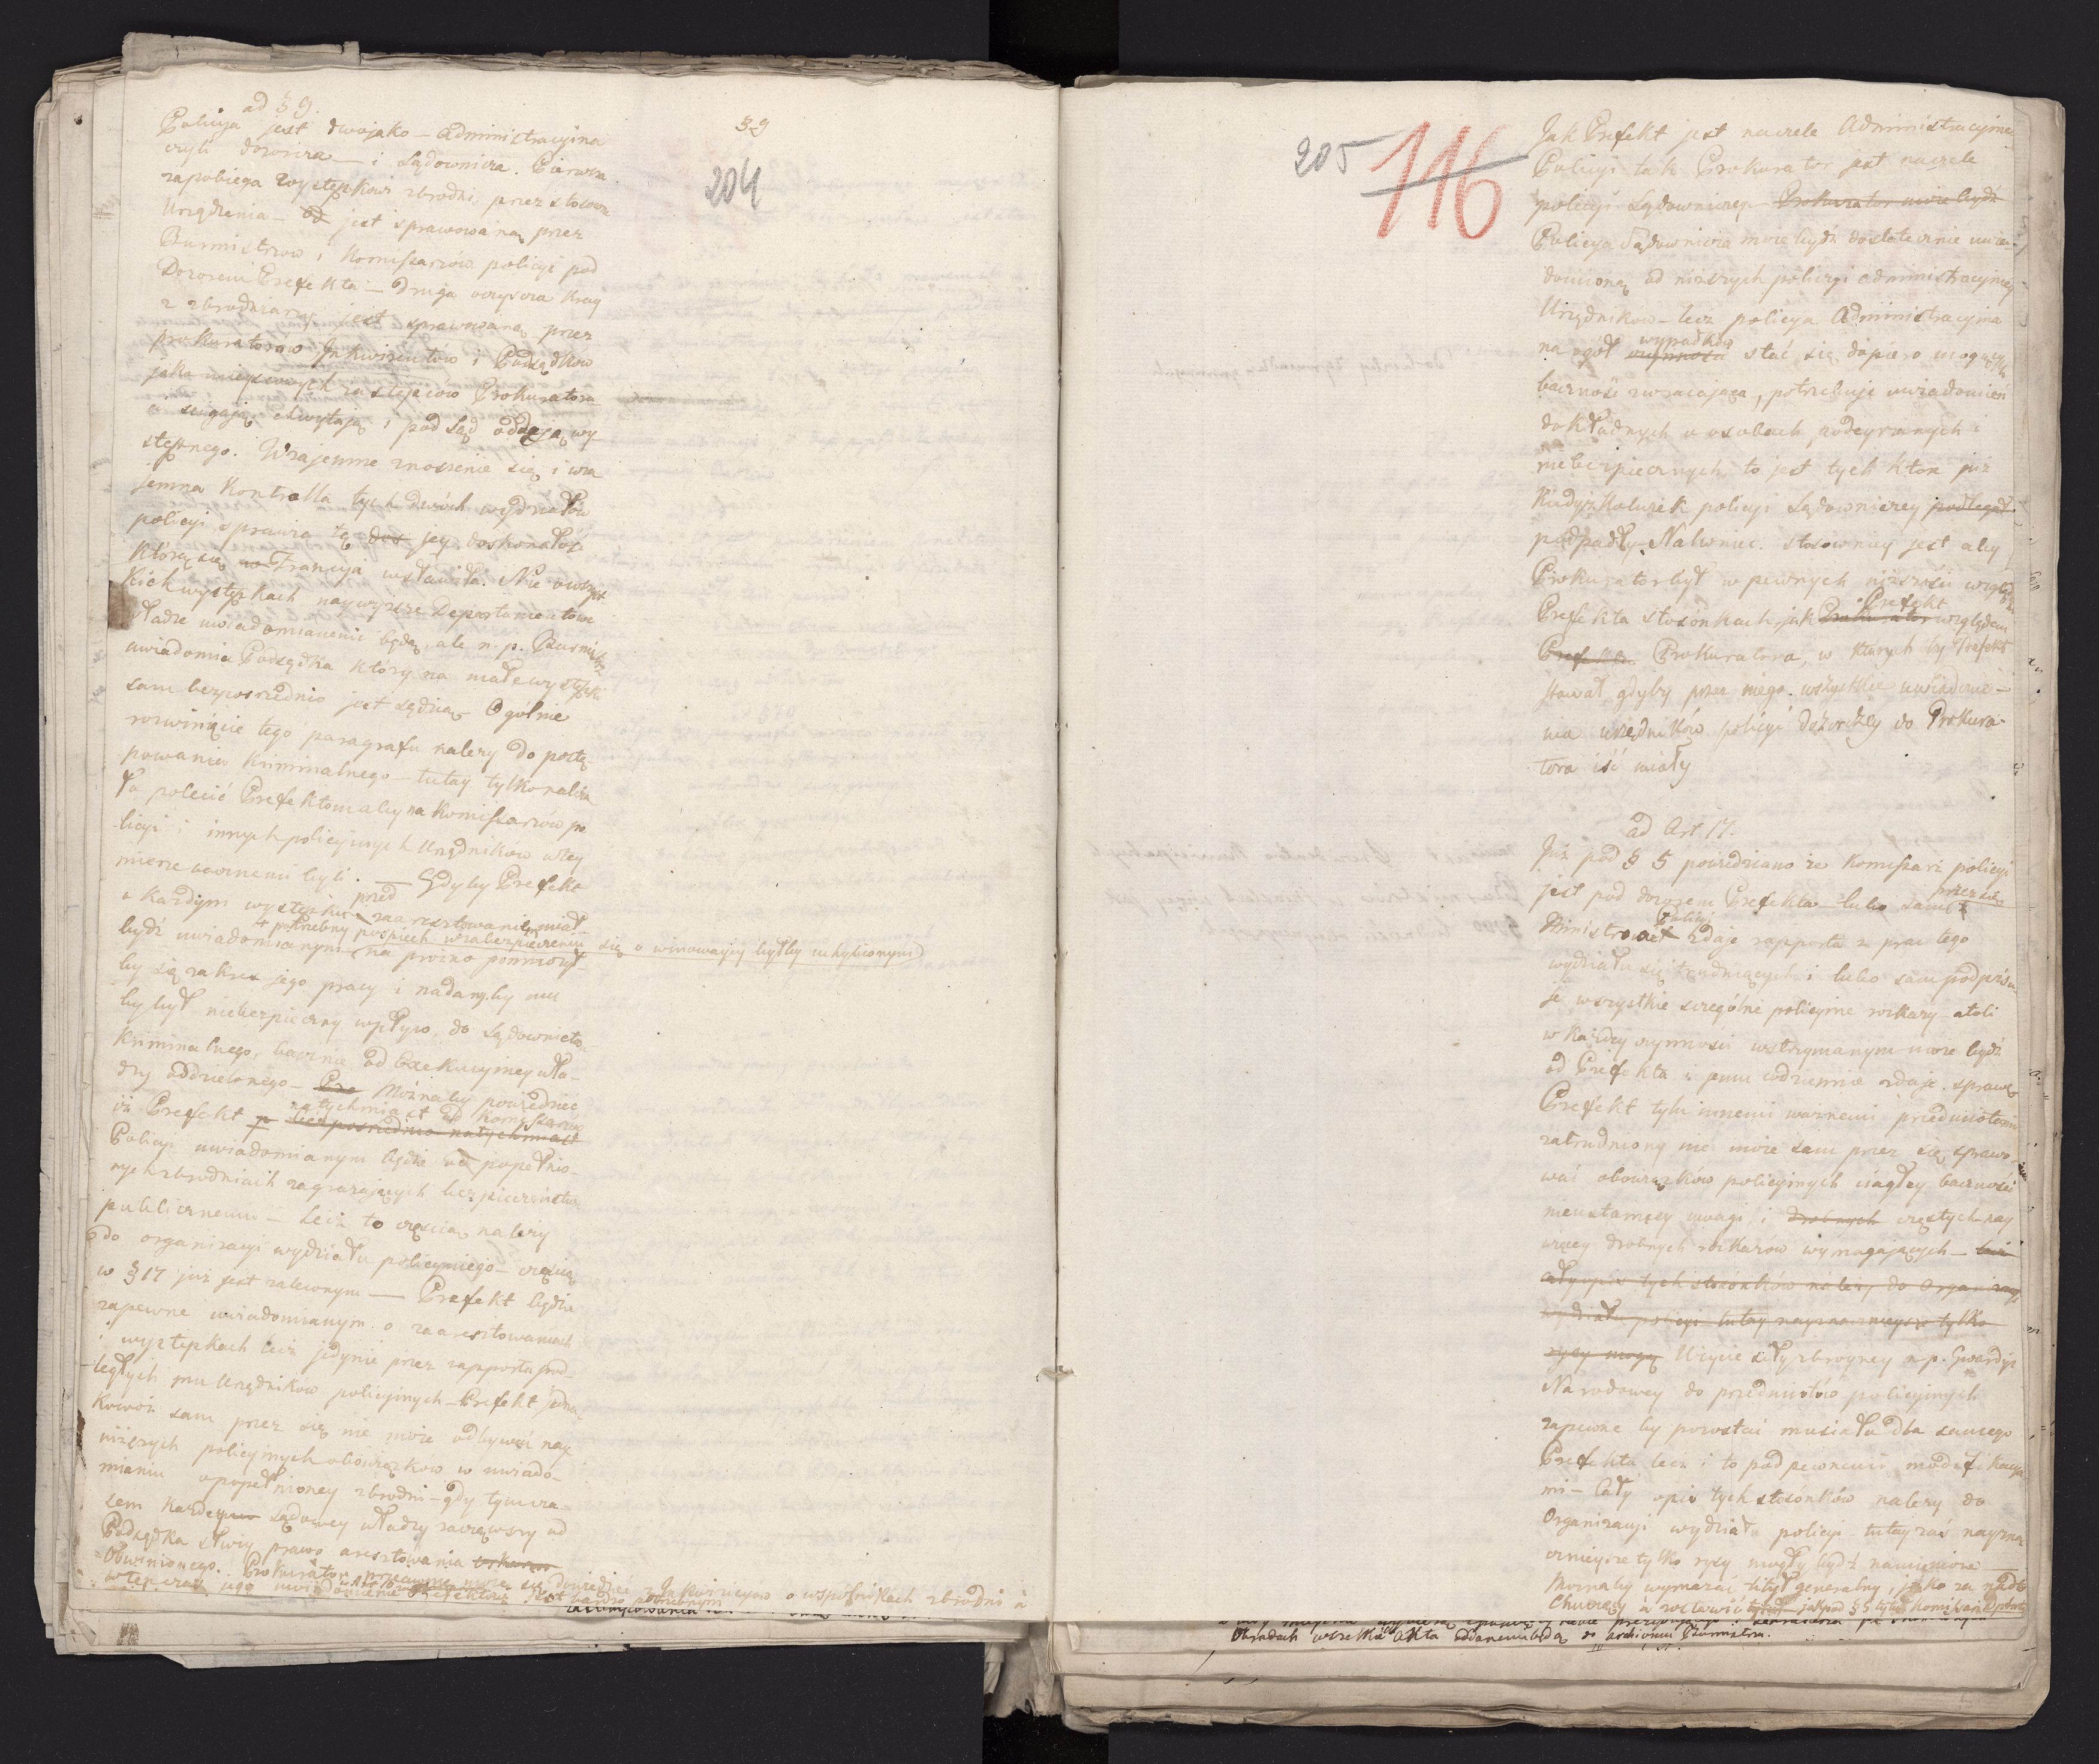 ad § 9.
Policyja jest dwojako – administracyjna
czyli dozorcza – i Sądownicza. Pierwsza
zapobiega występkowi zbrodni przez stosowne
Urządzenia – jest sprawowaną przez
Burmistrzow i Komissarzow policyi pod
Dozorem Prefekta – druga oczyszcza kray
z zbrodniarzy jest sprawowaną przez
prokuratorow Inkwirentów i Podsędkow
jako zastępcow Prokuratora
ci scigają chwytają i pod Sąd oddają wy
stępnego. Wzajemne znoszenie się i wza
jemna Kontrolla tych dwóch wydziałów
policyi sprawia tę dos jey doskonałość
którą się w Francyja wsławiła. Nie o wszyst-
kich występkach naywyższe Departamentowe
władze uwiadomianemi będą, ale n. p. Burmistrz
uwiadomia Podsędka który na małe występki
sam bezposrzednio jest sędzią – Ogólnie
rozwinięcie tego paragrafu należy do postę-
powania Kriminalnego – tutay tylko należa
ło polecić Prefektom aby na Komissarzów po
licyi i innych policyjnych Urzędnikow w tey
mierze bacznemi byli. – Gdyby Prefekt
o każdym występku przed zaaresztowaniem miał
+ potrzebny pospiech w zabezpieczeniu się o winowaycy byłby uchybionym
bydź uwiadomianym + na prozno pomnożył
by się zakres jego pracy i nadanyby mu
by był niebezpieczny wpływ do Sądownictwa
Kriminalnego, bacznie od Exekucyjney wła-
dzy oddzielonego – Pre Możnaby powiedzieć
natychmiast od Komissarzów
iż Prefekt p bezposrednio natychmiast
Policyi uwiadomianym będzie o popełnio-
nych zbrodniach zagrażających bezpieczeństwu
publicznemu – Lecz to częscią należy
do organizacyi wydziału policyjnego – częscią
w § 17 już jest zaleconym – Prefekt będzie
zapewne uwiadomianym o zaaresztowaniach
i występkach lecz jedynie przez rapporta pod-
ległych mu Urzędnikow policyjnych – Prefekt jedna
kowoż sam przez się nie może odbywać nay
niższych policyjnych obowiązkow w uwiado-
mianiu o popełnioney zbrodni – gdy tymcza-
sem każdey sądowey władzy zacząwszy od
Podsędka służy prawo aresztowania
Obwinionego. Prokurator przeciwnie może się dowiedziec z Inkwizycyow o wspólnikach zbrodni à
wten czas jego uwiadomienie Prefektowi jest bardzo potrzebnym
§ 9
204
205
116
Jak Prefekt jest naczele Administracyjney
Policyi tak Prokurator jest naczele
policyi Sądowniczey – Prokurator może bydź
Policya Sądownicza może bydź dostatecznie uwia-
domioną od niższych policyi administracyjney
Urzędnikow – lecz policya Administracyjna
wypadków
na ogół czynności stać się dopiero mogących
baczność zwracająca, potrzebuje uwiadomień
dokładnych o osobach podeyrzanych i
niebezpiecznych to jest tych które już
kiedyżkolwiek policyi Sądowniczey podlegał
podpadły. Nakoniec stosowniey jest aby
Prokurator był w pewnych niższości względem
Prefekt
Prefekta stosonkach, jak Prokurator względem
Prefekta Prokuratora, w których by Prefekt
stawał gdyby przez niego wszystkie uwiadomie-
nia urzędników policyi dozorczey do Prokura-
tora iść miały
ad Art 17.
Już pod § 5 powiedziano że Komissarz policyi
jest pod dozorem Prefekta – lubo sam przez się
Policyi
Ministrowi zdaje rapporta z prac tego
wydziału się trudniących i lubo sam podpisu-
je wszystkie szczególne policyjne rozkazy – atoli
w każdey czynności wstrzymanym może bydź
od Prefekta i jemu codziennie zdaje sprawę
Prefekt tylu innemi ważnemi przedmiotami
zatrudniony nie może sam przez się sprawo-
wać obowiązków policyjnych ciągłey baczności
nieustanney uwagi i drobnych częstych nay
więcey drobnych rozkazów wymagających – lecz
cały opis tych stosónków należy do Organizacyi
wydziału policyi tutay nayznacznieysze tylko
rysy mogą Użycie siły zbroyney n p. Gwardyi
Narodowey do przedmiotów policyjnych
zapewne by pozostać musiała dla samego
Prefekta lecz i to pod pewnemi modifikacya
mi – Cały opis tych stosónków należy do
Organizacyi wydziału policyi – tutay zaś nayzna
cznieysze tylko rysy mogły bydź namienione
Możnaby wymazać tituł generalny, jako za nadto
chwiejący à zostawić tytuł jak pod § 5 tytuł Komissarz
Obradach wszelkie Akta oddanemi będą do archiwum Burmistrza.